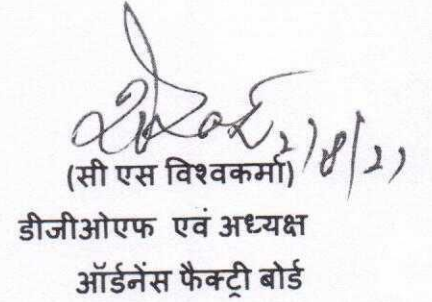 2/8/21
(सी एस विश्वकर्मा)
डीजीओएफ एवं अध्यक्ष
ऑर्डनेंस फैक्ट्री बोर्ड